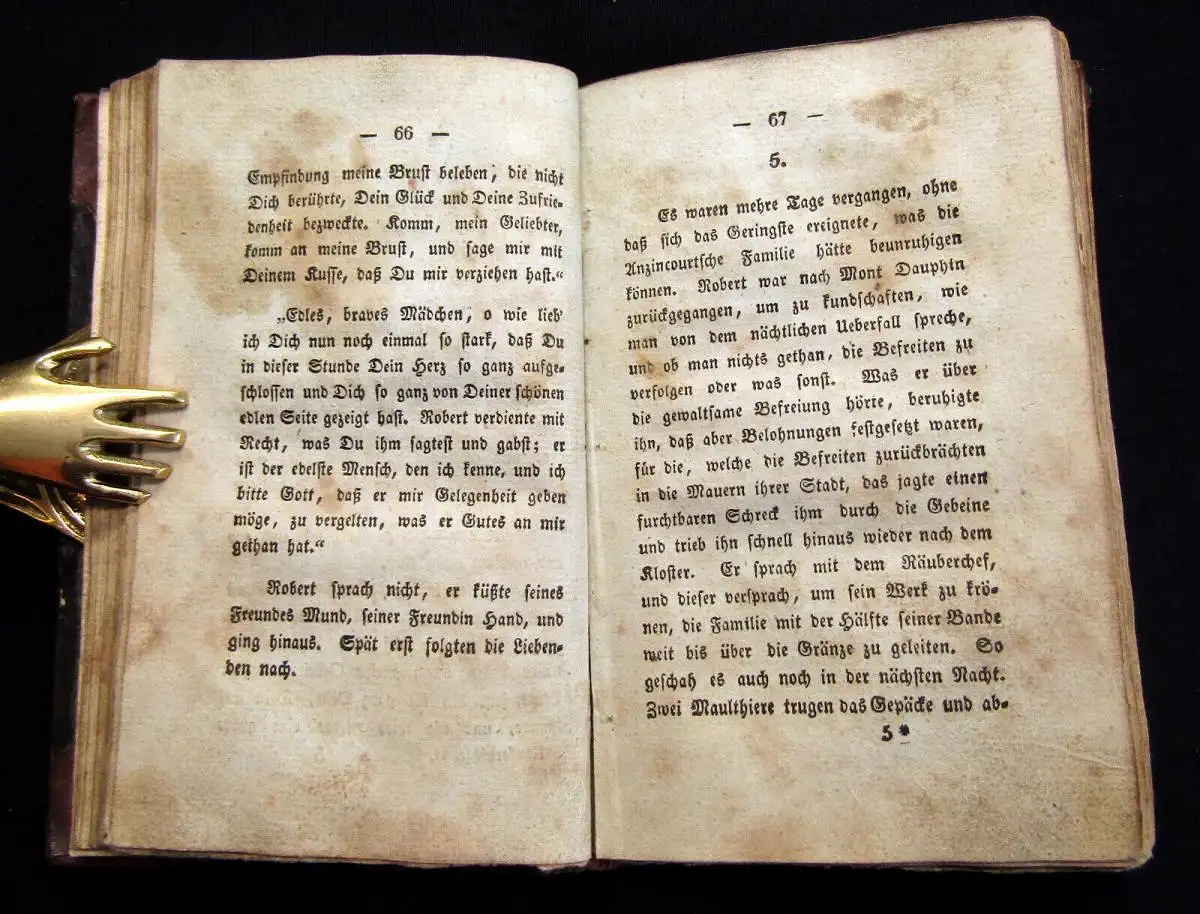 — 66 —
Empfindung meine Brust beleben, die nicht
Dich berührte, Dein Glück und Deine Zufrie-
denheit bezweckte. Komm, mein Geliebter,
komm an meine Brust, und sage mir mit
Deinem Kusse, daß Du mir verziehen hast.“
„Edles, braves Mädchen, o wie lieb'
ich Dich nun noch einmal so stark, daß Du
in dieser Stunde Dein Herz so ganz aufge-
schlossen und Dich so ganz von Deiner schönen
edlen Seite gezeigt hast. Robert verdiente mit
Recht, was Du ihm sagtest und gabst; er
ist der edelste Mensch, den ich kenne, und ich
bitte Gott, daß er mir Gelegenheit geben
möge, zu vergelten, was er Gutes an mir
gethan hat.“
Robert sprach nicht, er küßte seines
Freundes Mund, seiner Freundin Hand, und
ging hinaus. Spät erst folgten die Lieben-
den nach.
— 67 —
5.
Es waren mehre Tage vergangen, ohne
daß sich das Geringste ereignete, was die
Anzincourtsche Familie hätte beunruhigen
können. Robert war nach Mont Dauphin
zurückgegangen, um zu kundschaften, wie
man von dem nächtlichen Ueberfall spreche,
und ob man nichts gethan, die Befreiten zu
verfolgen oder was sonst. Was er über
die gewaltsame Befreiung hörte, beruhigte
ihn, daß aber Belohnungen festgesetzt waren,
für die, welche die Befreiten zurückbrächten
in die Mauern ihrer Stadt, das jagte einen
furchtbaren Schreck ihm durch die Gebeine
und trieb ihn schnell hinaus wieder nach dem
Kloster. Er sprach mit dem Räuberchef,
und dieser versprach, um sein Werk zu krö-
nen, die Familie mit der Hälfte seiner Bande
weit bis über die Gränze zu geleiten. So
geschah es auch noch in der nächsten Nacht.
Zwei Maulthiere trugen das Gepäcke und ab-
5*